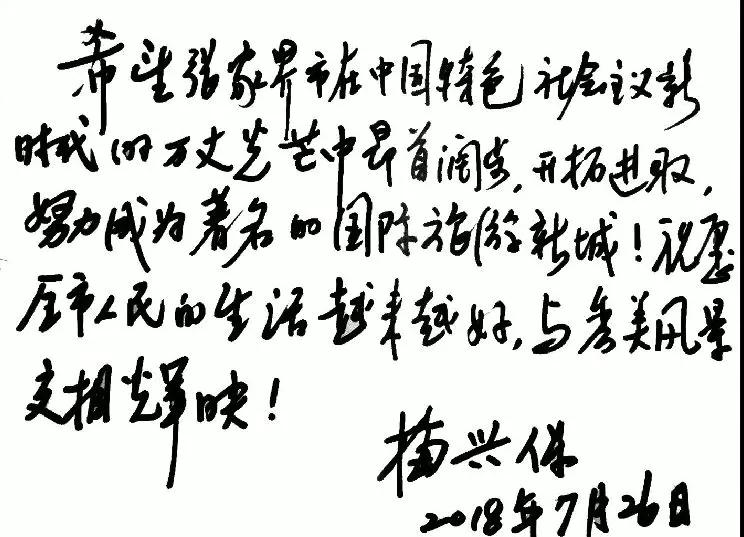 希望张家界市在中国特色社会主义新
时代的万丈光芒中昂首阔步,开拓进取,
努力成为著名的国际旅游新城!祝愿
全市人民的生活越来越好,与秀美风景
交相光辉映!
兴保
2018年7月26日